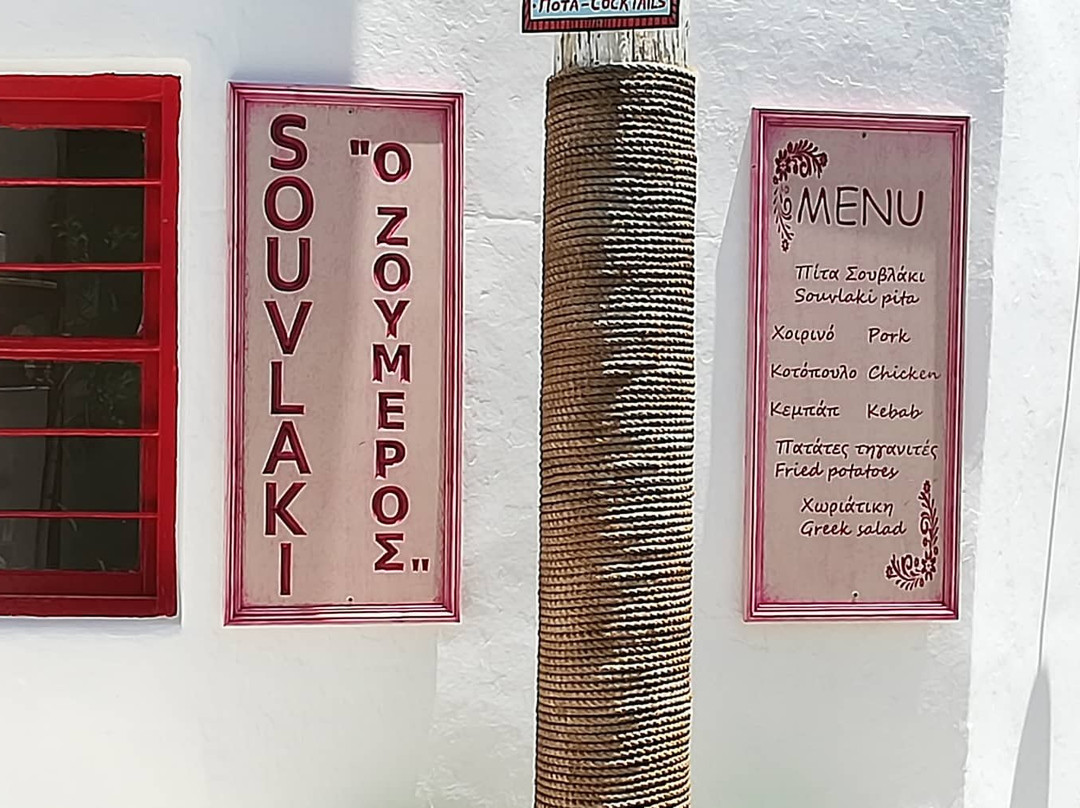 ·ΠΟΤΑ-COCKTAILS
SOUVLAKI
"Ο ΖΟΥΜΕΡΟΣ"
MENU
Πίτα Σουβλάκι
Souvlaki pita
Χοιρινό Pork
Κοτόπουλο Chicken
Κεμπάπ Kebab
Πατάτες τηγανιτές
Fried potatoes
Χωριάτικη
Greek salad